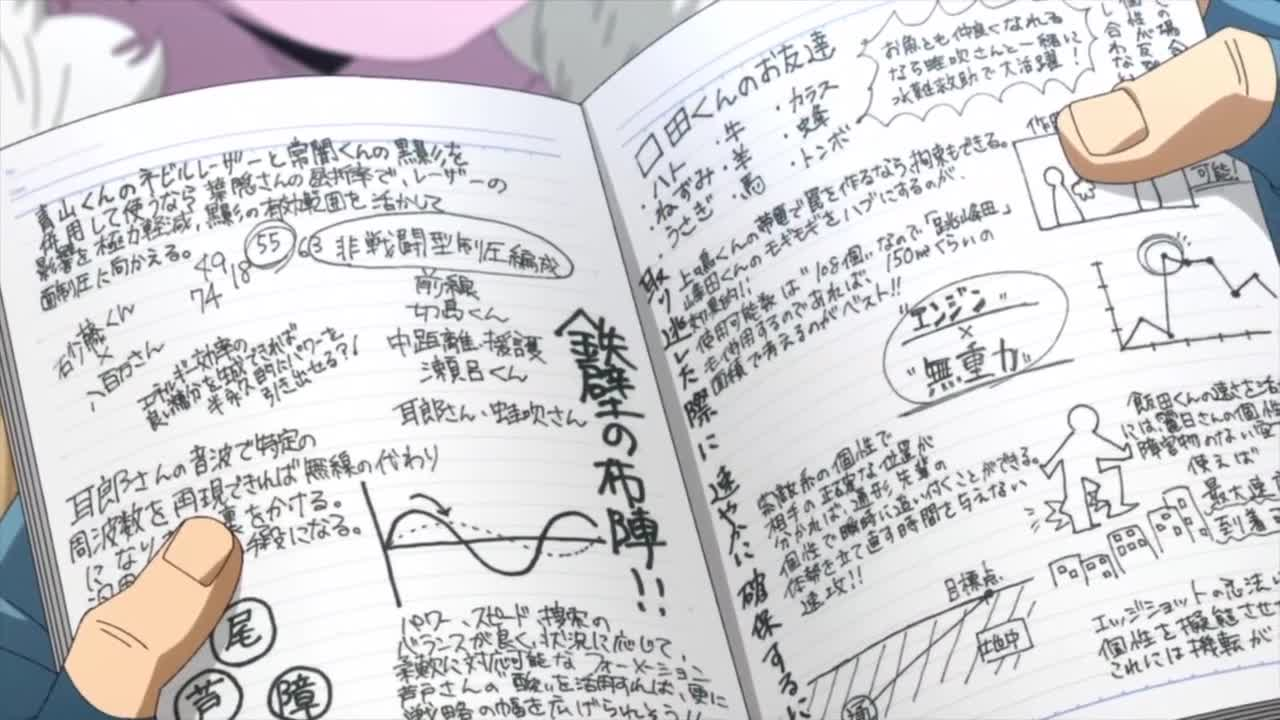 青山くんのネビルレーザーと常闇くんの黒影を
併用して使うなら葉隠さんの屈折率で、レーザーの
影響を極力軽減、黒影の有効範囲を活かして
面制圧に向かえる。
49
18
55
63
74
非戦闘型制圧編成
前線
切島くん
中距離・援護
瀬呂くん
耳郎さん・蛙吹さん
砂藤くん
×
八百万さん
エネルギー効率の
良い糖分を生成できれば
半永久的だパワーを
引き出せる?!
鉄壁の布陣!!
耳郎さんの音波で特定の
周波数を再現できれば無線の代わり
をかける。
になる。
尾
芦
障
パワー、スピード、捜索の
バランスが良く、状況に応じて、
柔軟に対応可能なフォーメーション
芦戸さんの酸を活用すれば、更に
戦略の幅を広げられそう!!
口田くんのお友達
・ハト
・ねずみ
・うさぎ
・牛
・羊
・馬
・カラス
・蜂
・トンボ
お魚とも仲良くなれる
なら蛙吹さんと一緒に
水難救助で大活躍!
上鳴くんの帯電で罠を作るなら、拘束もできる。
峰田くんのモギモギをハブにするのが、
効果的!!
使用可能数は"108個"なので「
も使用するのであれば、150㎡ぐらいの
面積で考えるのがベスト!!
可能!
"エンジン"
×
"無重力"
取り逃した際に速やかに確保するに
索敵系の個性で
相手の正確な位置が
分かれば、遠形先輩の
個性で瞬時に追い付くことができる。
体勢を立て直す時間を与えない
速攻!!
飯田くんの速さを活
には麗日さんの個性
障害物のない空
使えば
最大速
到着
目標点
地中
エッジショットの忍法
個性を擬態させ
これには機転が